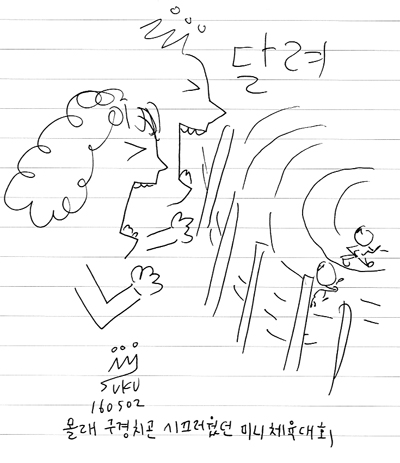 달려
SUKU
160502
몰래 구경치곤 시끄러웠던 미니체육대회